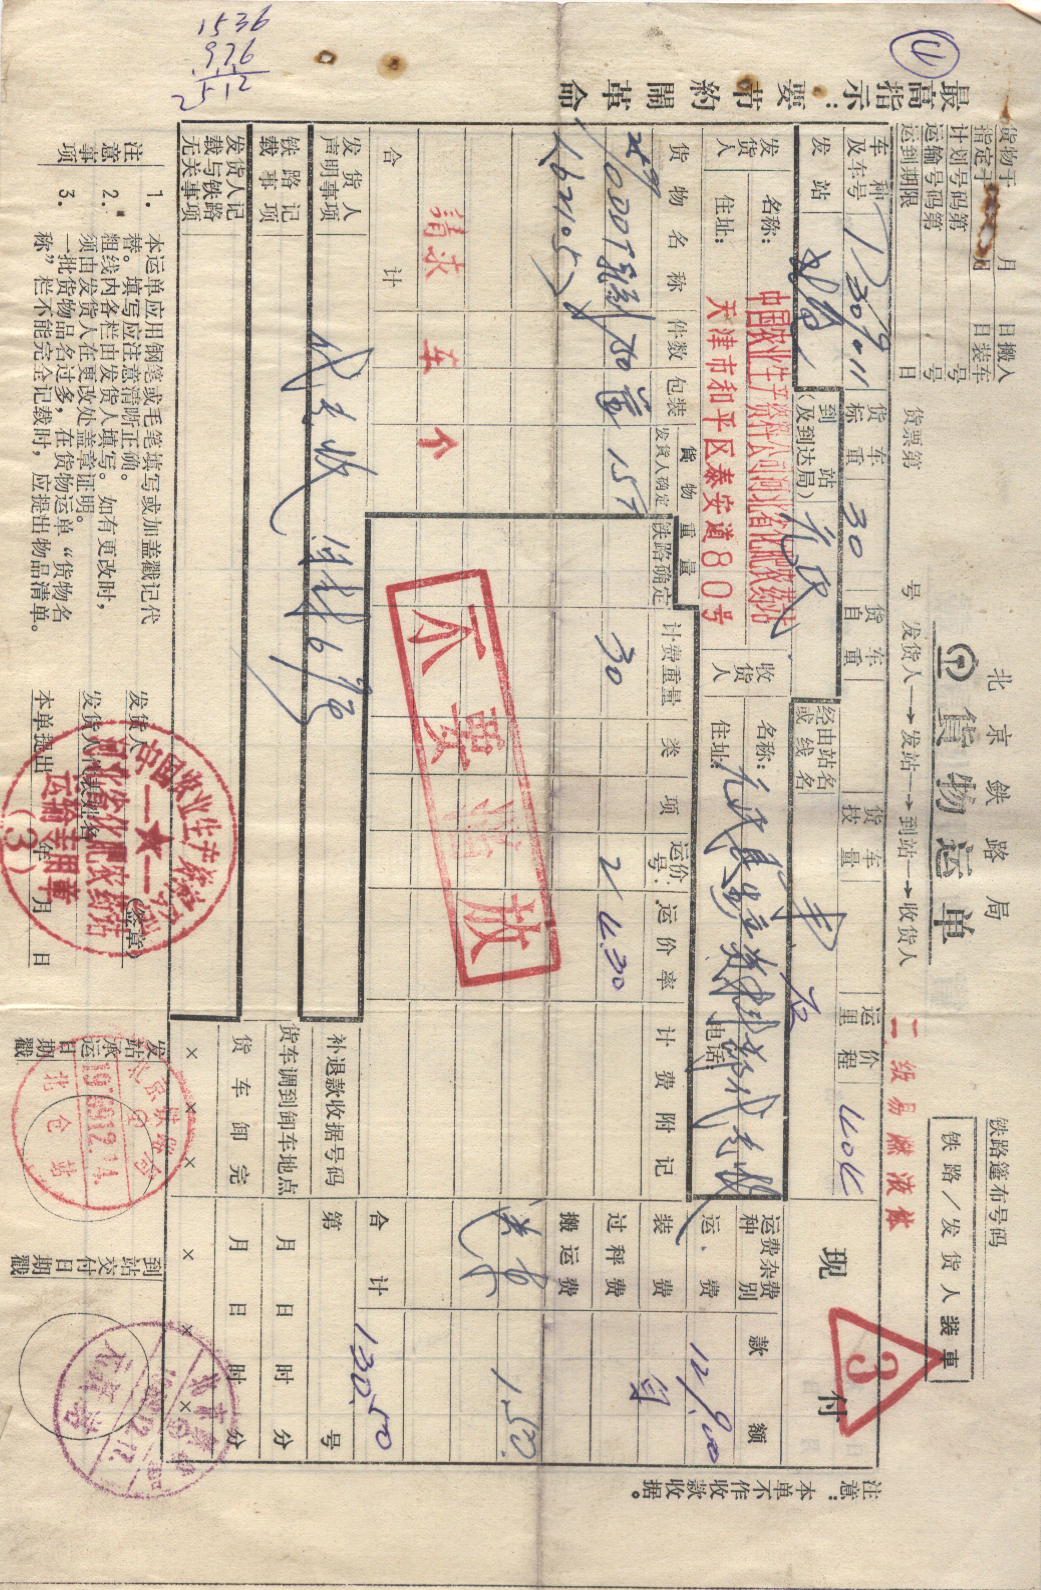 最高指示：要节约闹革命
北京铁路局
货物运单
发货人→发站→到站→收货人
货物于 月 日搬入
指定于 月 日装车
计划号码第 号
运输号码第 号
运到期限 日
货票第 号
铁路篷布号码
铁路/发货人装車
二级易燃液体
车种及车号
货车标重 30
货车自重
货车技量
运价里程
现付
3
发站
到站（及到达局）
经由站名或线名
发货人
名称：中国农业生产资料公司河北省化肥农药站
住址：天津市和平区泰安道80号
收货人
名称：
住址：
电话：
运费杂费种别
款额
货物名称
件数
包装
貨物重量
发貨人确定
铁路确定
计费重量
类项
运价号
运价率
计费附记
30
21
4.30
运费 129.00
装费
过秤费
搬运费
1.50
合计
合计 130.50
请求 车 个
不要 放
发货人声明事项
铁路记载事项
发货人记载与铁路无关事项
补退款收据号码 第 号
货车调到卸车地点 月 日 时 分
货车卸完 月 日 时 分
× × × × × ×
注意事项
1. 本运单应用钢笔或毛笔填写或加盖戳记代替。填写应注意清晰正确。
2. 粗线内各栏由发货人填写。如有更改时，须由发货人在更改处盖章证明。
3. 一批货物品名过多，在货物运单“货物名称”栏不能完全记载时，应提出物品清单。
发货人
发货人代表姓名 （签章）
本单提出 年 月 日
运输专用章
(3)
发站承运日期戳
北仓站
1969.12.14.
到站交付日期戳
注意：本单不作收款收据。
1536
976
2512